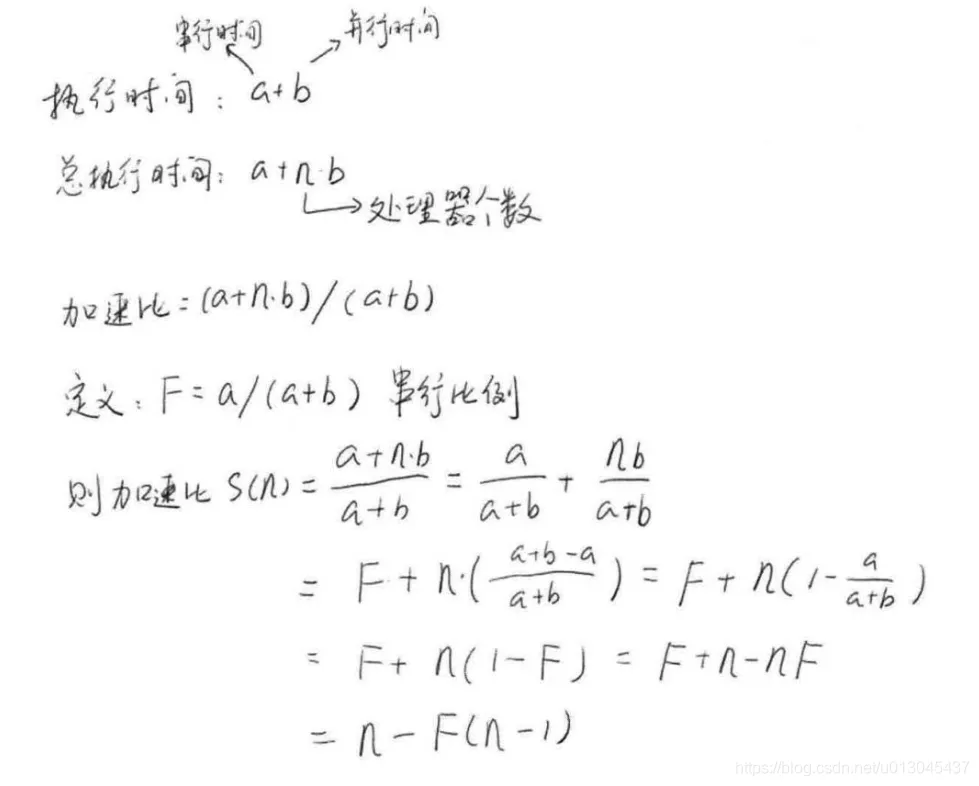 串行时间 并行时间
执行时间: a+b
总执行时间: a+n·b
处理器个数
加速比=(a+n·b)/(a+b)
定义: F=a/(a+b) 串行比例
则加速比 S(n)= \frac{a+n·b}{a+b} = \frac{a}{a+b} + \frac{nb}{a+b}
= F+n·(\frac{a+b-a}{a+b}) = F+n(1-\frac{a}{a+b})
= F+n(1-F) = F+n-nF
= n-F(n-1)
https://blog.csdn.net/u013045437